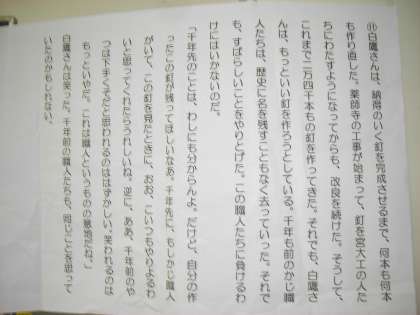 ⑪白鷹さんは、納得のいく釘を完成させるまで、何本も何本
も作り直した。薬師寺の工事が始まって、釘を宮大工の人た
ちにわたすようになってからも、改良を続けた。そうして、
これまで二万四千本もの釘を作ってきた。それでも、白鷹さ
んは、もっといい釘を作ろうとしている。千年も前のかじ職
人たちは、歴史に名を残すこともなく去っていった。それで
も、すばらしいことをやりとげた。この職人たちに負けるわ
けにはいかないのだ。
「千年先のことは、わしにも分からんよ。だけど、自分の作
ったこの釘が残ってほしいなあ。千年先に、もしかじ職人
がいて、この釘を見たときに、おお、こいつもやりよるわ
いと思ってくれたらうれしいね。逆に、ああ、千年前のや
つは下手くそだと思われるのははずかしい。笑われるのは
もっといやだ。これは職人というものの意地だね。」
白鷹さんは笑った。千年前の職人たちも、同じことを思って
いたのかもしれない。